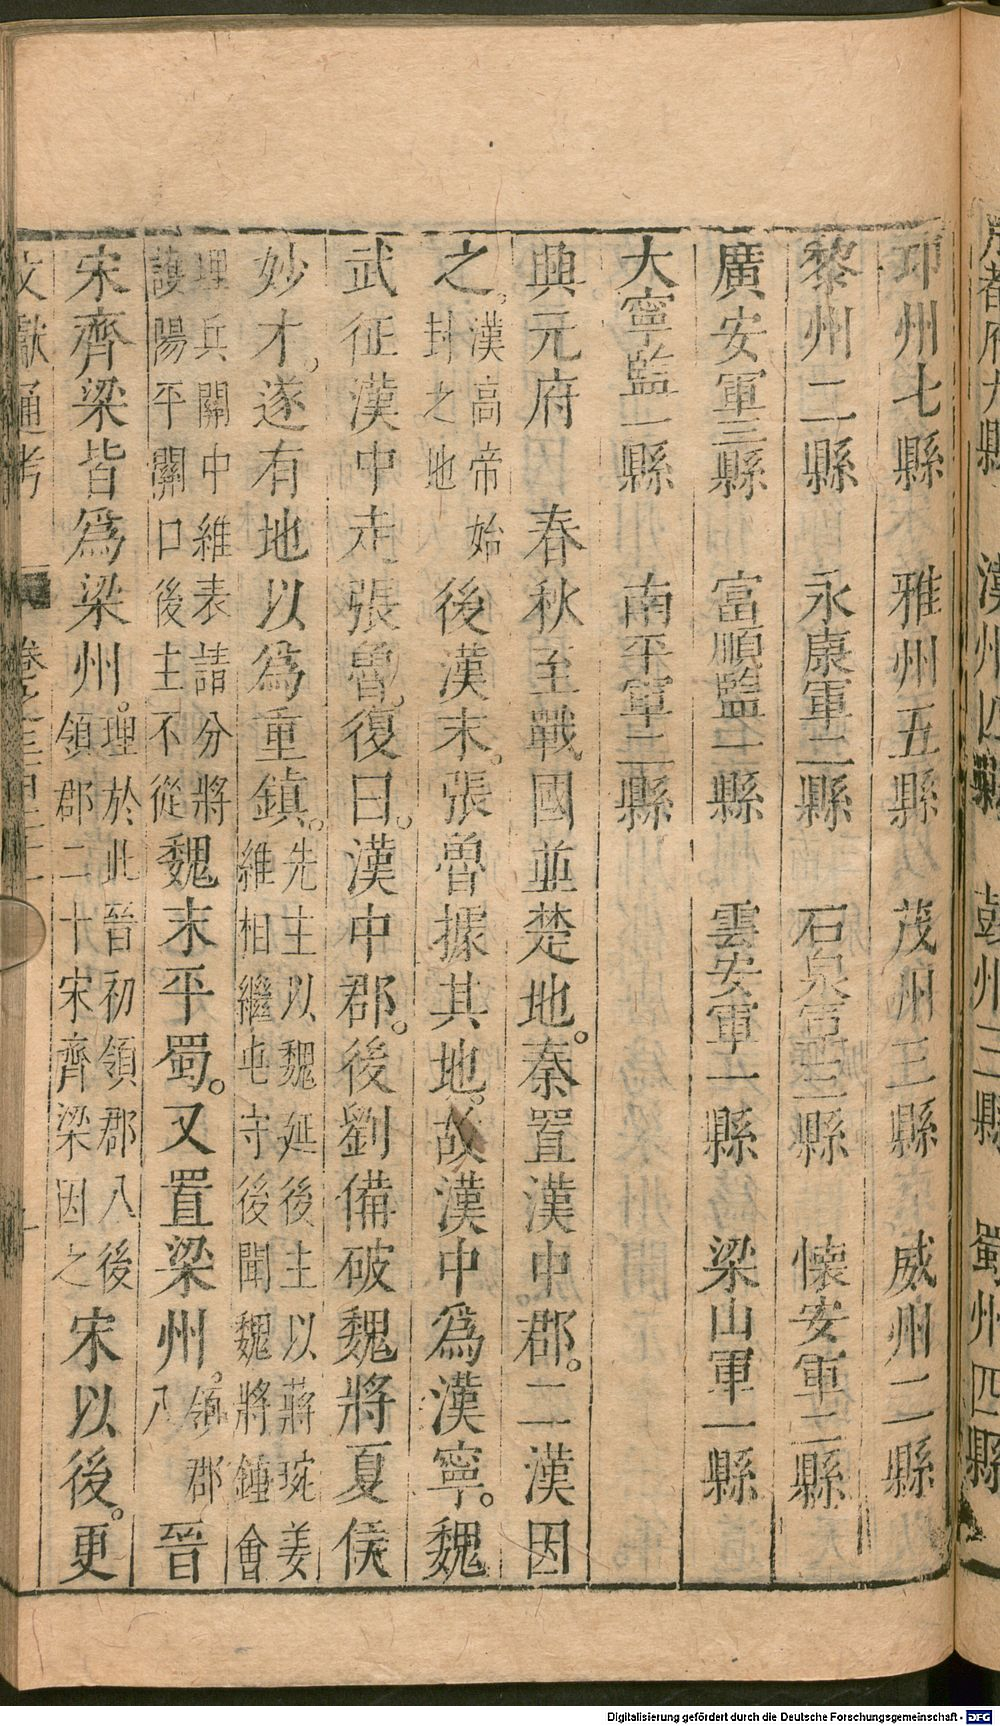 邛州七縣　雅州五縣　茂州三縣　威州二縣
黎州二縣　永康軍二縣　石泉軍三縣　懷安軍二縣
廣安軍三縣　富順監一縣　雲安軍一縣　梁山軍一縣
大寧監一縣　南平軍二縣
興元府　春秋至戰國並楚地。秦置漢中郡。二漢因
之。漢高帝始封之地後漢末。張魯據其地。故漢中爲漢寧。魏
武征漢中走張魯。復曰。漢中郡。後劉備破魏將夏侯
妙才。遂有地以爲重鎮。先主以魏延後主以蔣琬姜維相繼屯守後聞魏將鍾會
理兵關中維表請分將護陽平關口後主不從魏末平蜀。又置梁州。領郡八晉
宋齊梁皆爲梁州。理於此晉初領郡八後領郡二十宋齊梁因之宋以後。更
文獻通考　卷之三百二十一
漢州四縣　彭州三縣　蜀州四縣
Digitalisierung gefördert durch die Deutsche Forschungsgemeinschaft - DFG